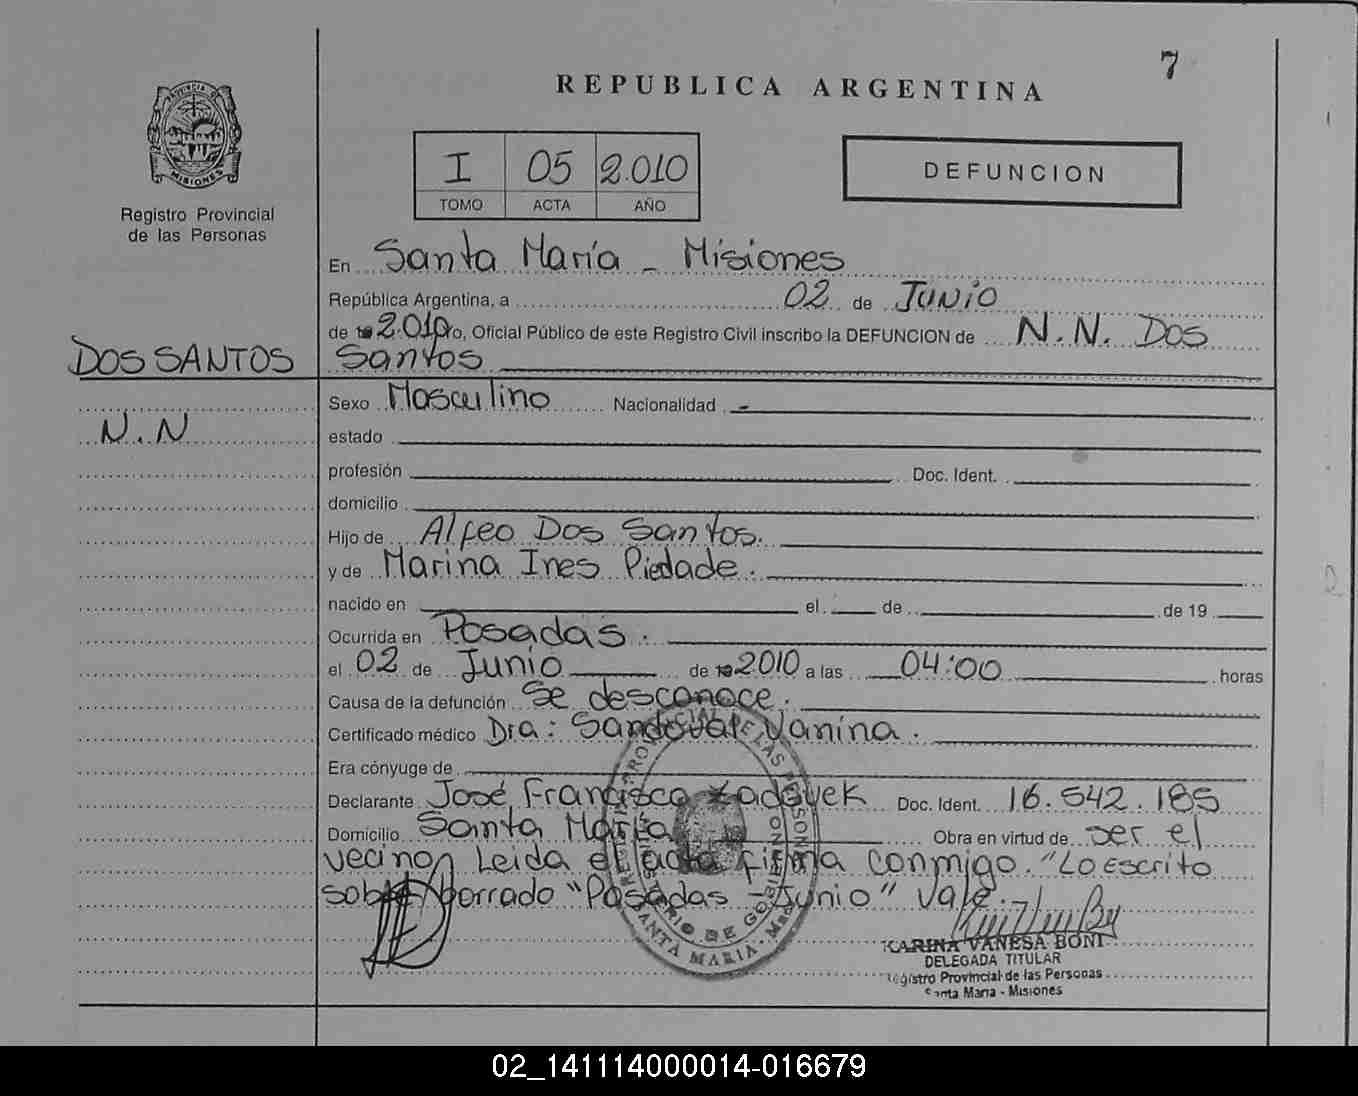 7
REPUBLICA ARGENTINA
PROVINCIA DE
MISIONES
Registro Provincial
de las Personas
I 05 2.010
TOMO ACTA AÑO
DEFUNCION
En Santa María - Misiones
República Argentina, a 02 de Junio
de 2.010 yo, Oficial Público de este Registro Civil inscribo la DEFUNCION de N.N. Dos
DOS SANTOS
Santos
Sexo Masculino Nacionalidad -
N.N
estado
profesión Doc. Ident.
domicilio
Hijo de Alfeo Dos Santos.
y de Marina Ines Piedade.
nacido en el de de 19
Ocurrida en Posadas.
el 02 de Junio de 2010 a las 04:00 horas
Causa de la defunción Se desconoce.
Certificado médico Dra: Sandoval, Vanina.
Era cónyuge de
Declarante José Francisco Doc. Ident. 16.542.185
Domicilio Santa María Obra en virtud de ser el
vecino Leida el acta firma conmigo. "Lo Escrito
sobre borrado "Posadas - Junio" Vale.-
KARINA VANESA BONI
DELEGADA TITULAR
Registro Provincial de las Personas
Santa Maria - Misiones
02_141114000014-016679